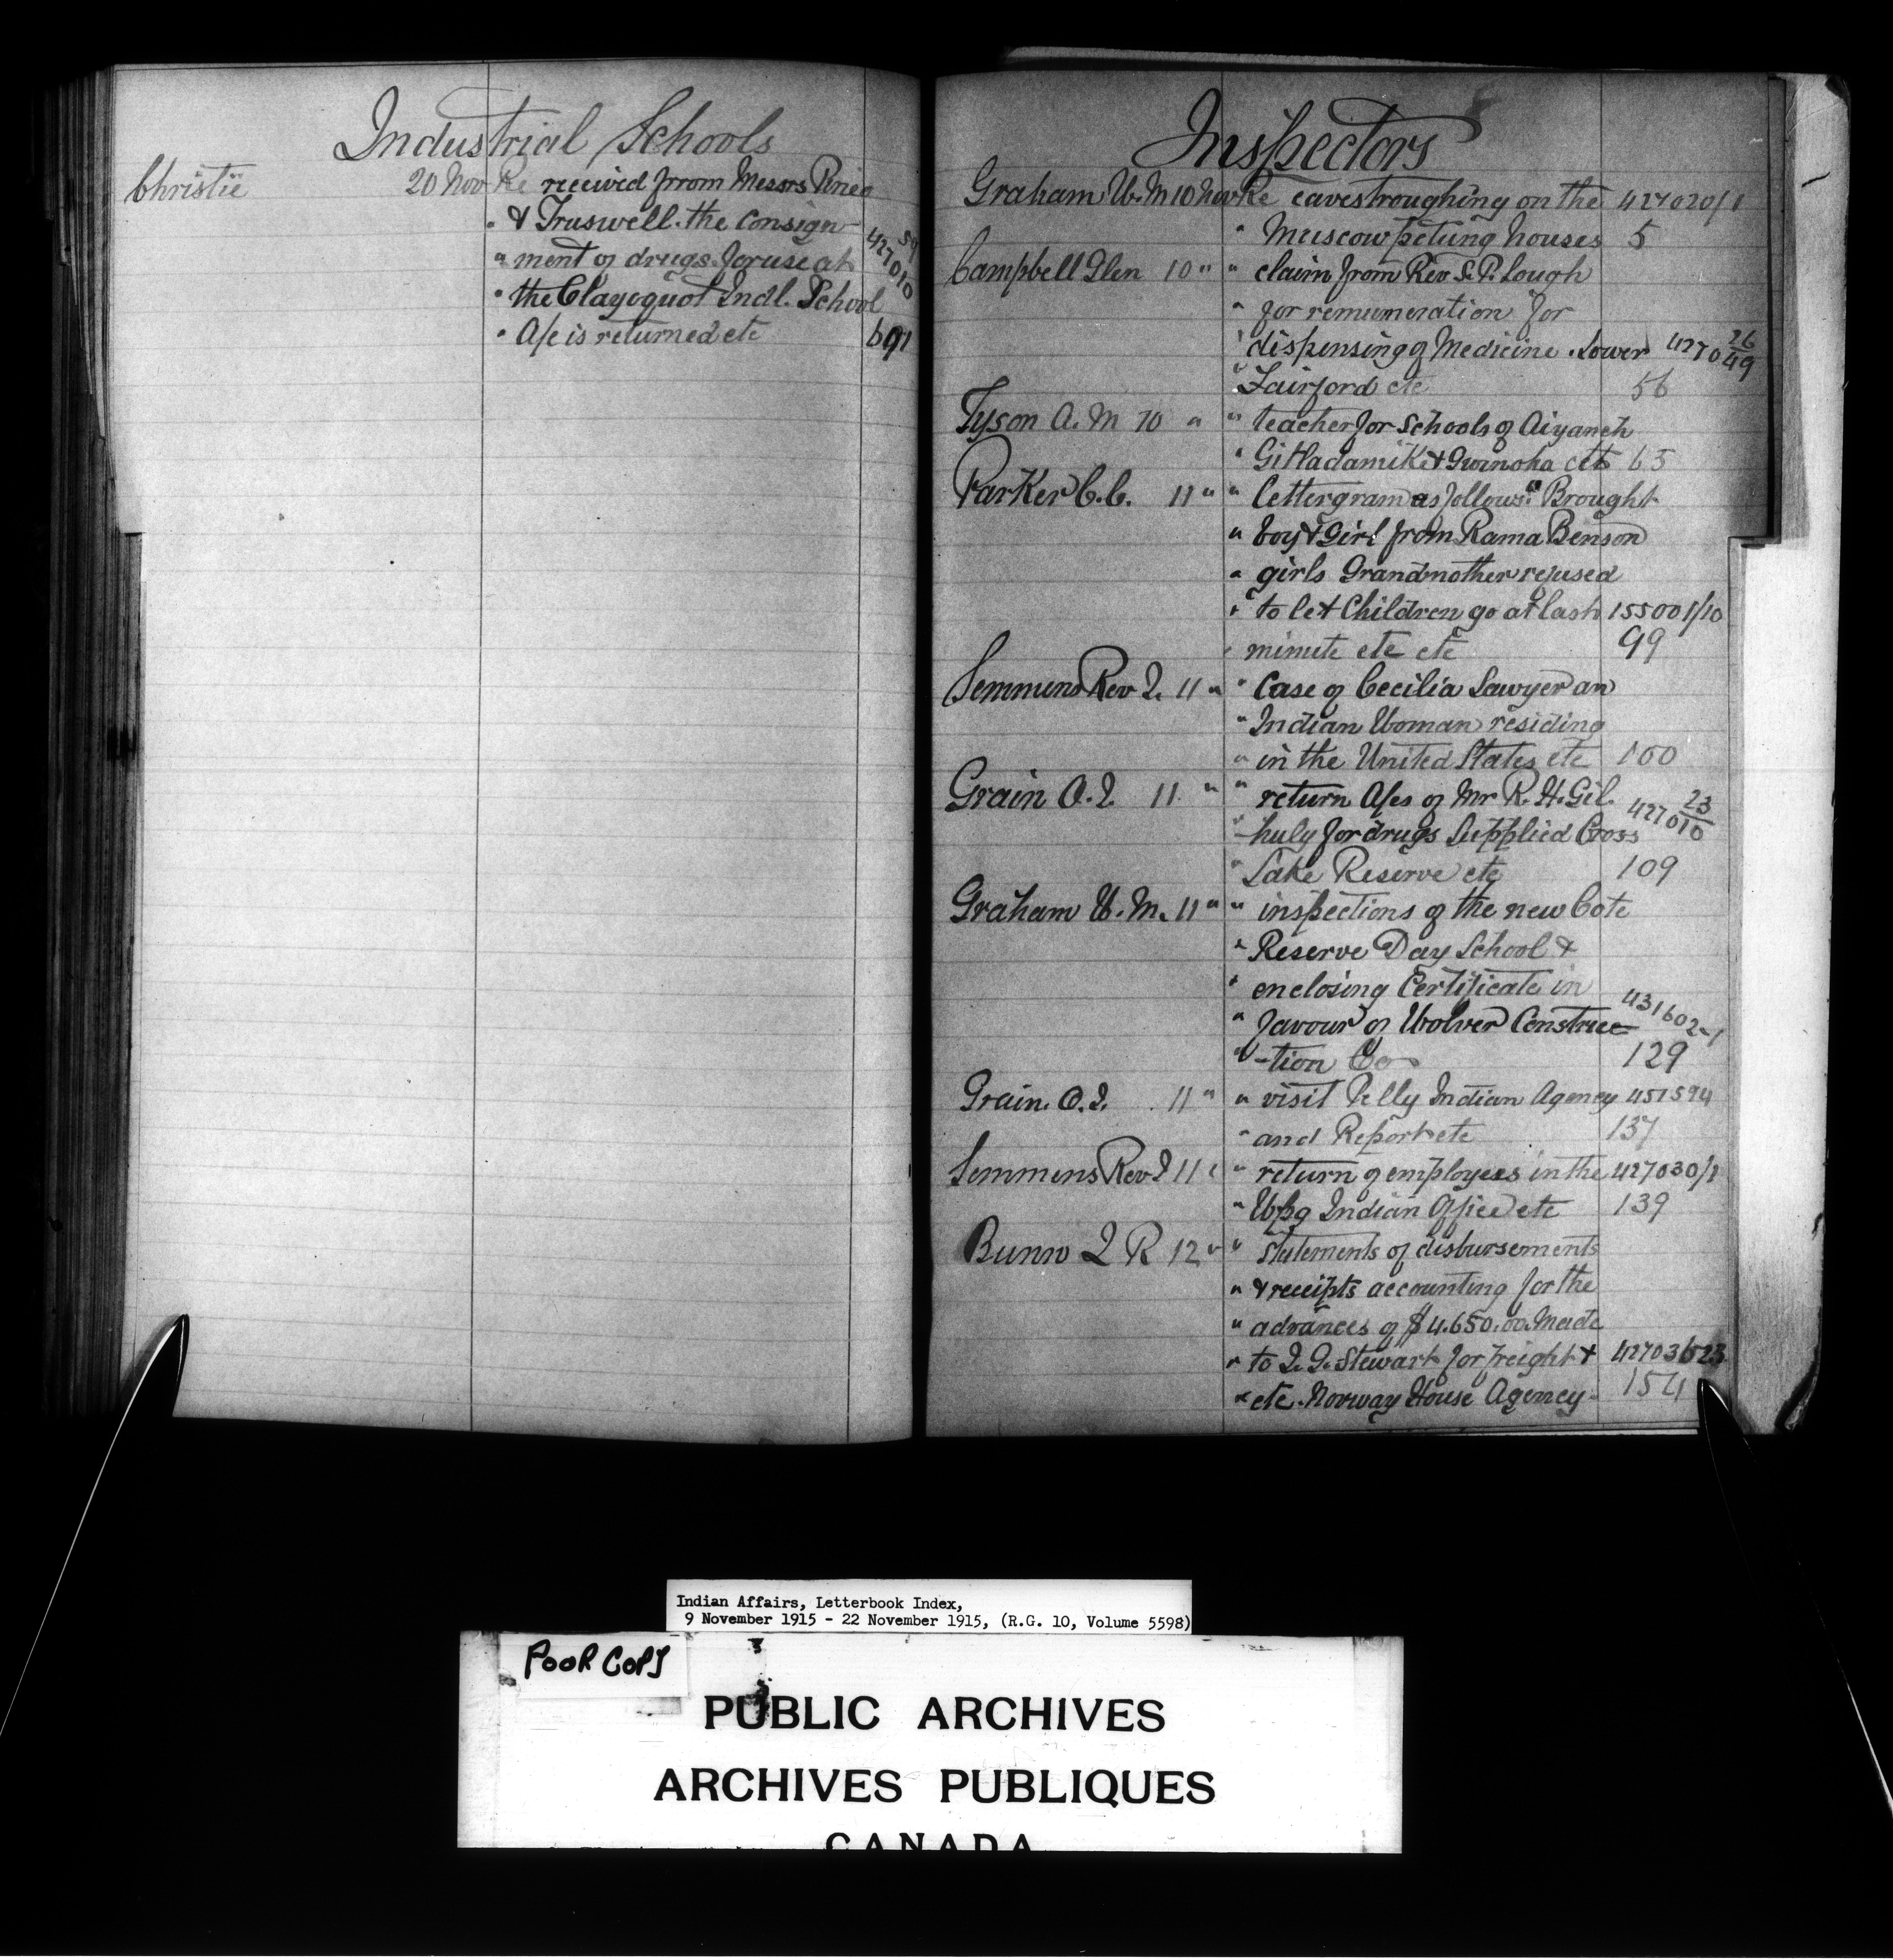 Industrial Schools
Christie 20 Nov Re received from Messrs
" & Truswell. the consign- 59
" ment of drugs for use at 427010
" the Clayoquot Indl. School
" A/c is returned etc 691
Inspectors
Graham W. M 10 Nov Re eavestroughing on the 427020/1
" Muscowpetung houses 5
Campbell Glen 10 " " claim from Rev S. P. Lough
" for remuneration for
" dispensing of Medicine. Lower 4270 26/49
" Fairford etc 56
Tyson A. M 10 " " teacher for Schools of Aiyansh
" Gitladamiks & Gwinoha etc 65
Parker C. C. 11 " " Lettergram as follows: " Brought
" boy & Girl from Rama Benson
" girls Grandmother refused
" to let Children go at last 155001/10
" minute etc etc 99
Semmens Rev J. 11 " " Case of Cecilia Sawyer an
" Indian Woman residing
" in the United States etc 100
Grain O. J. 11 " " return A/cs of Mr R. H. Gil.
" -huly for drugs Supplied Cross 42701 23/10
" Lake Reserve etc 109
Graham W. M. 11 " " inspections of the new Cote
" Reserve Day School &
" enclosing Certificate in
" favour of Wolver Construc- 431602-1
" -tion Co 129
Grain. O. J. 11 " " visit Pelly Indian Agency 451594
" and Report etc 137
Semmens Rev J 11 " " return of employees in the 427030/1
" Wpg Indian Office etc 139
Bunn J R 12 " " Statements of disbursements
" & receipts accounting for the
" advances of $4.650.00 Made
" to J. G. Stewart for freight &
" etc. Norway House Agency. 154
Indian Affairs, Letterbook Index,
9 November 1915 - 22 November 1915, (R.G. 10, Volume 5598)
POOR COPY
PUBLIC ARCHIVES
ARCHIVES PUBLIQUES
CANADA